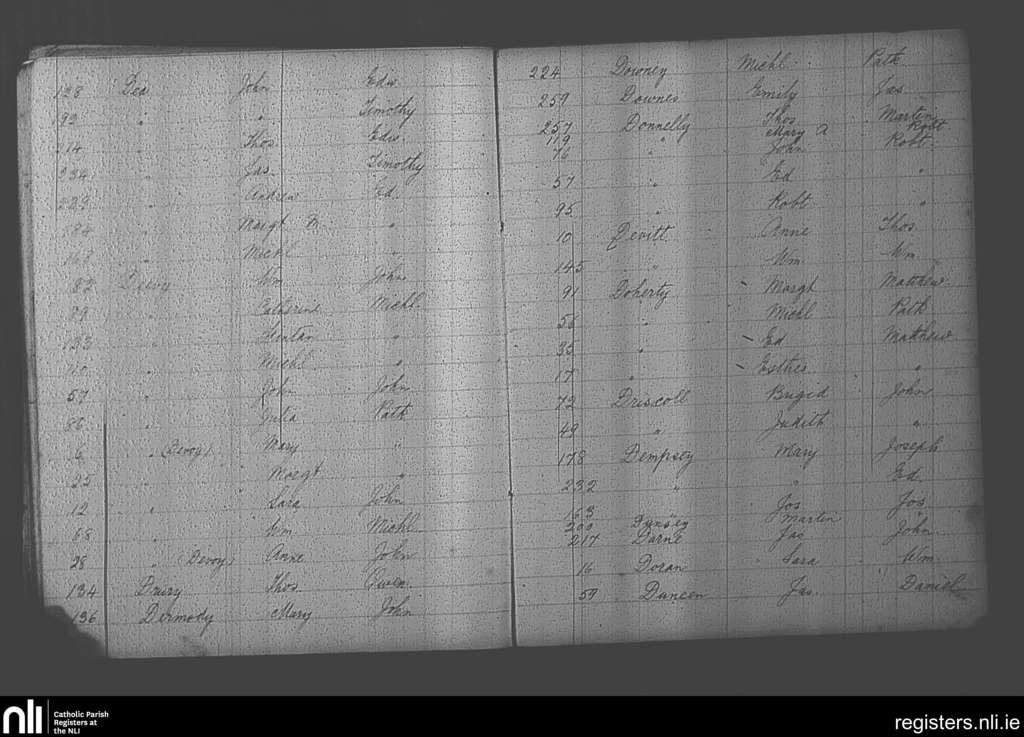 128 Dea John Edw.
192 " " Timothy
214 " Thos Edw.
234 " Jas. Timothy
229 " Andrew Ed.
184 " Margt B. "
168 " Michl "
82 Deevy Wm John
29 " Catherine Michl
133 " Fintan "
110 " Michl "
57 " John John
86 " Julia Patk
6 " (Devoy) Mary "
25 " Margt "
12 " Sara John
68 " Wm Michl
28 " (Devoy) Anne John
134 Drury Thos. Owen
136 Dermody Mary John
224 Downey Michl Patk
259 Downes Emily Jas
257 Donnelly Thos Martin
119 Mary A Robt
76 " John Robt
57 " Ed "
95 " Robt "
10 Devitt Anne Thos
145 " Wm Wm
91 Doherty Margt Matthew
56 " Michl Patk
35 " Ed Matthew
17 " Esther "
72 Driscoll Brigid John
49 " Judith "
178 Dempsey Mary Joseph
232 " " Ed
163 Jos Jos
200 Martin "
217 Darne Jas John
16 Doran Sara Wm
59 Duneen Jas. Daniel
nli Catholic Parish Registers at the NLI
registers.nli.ie